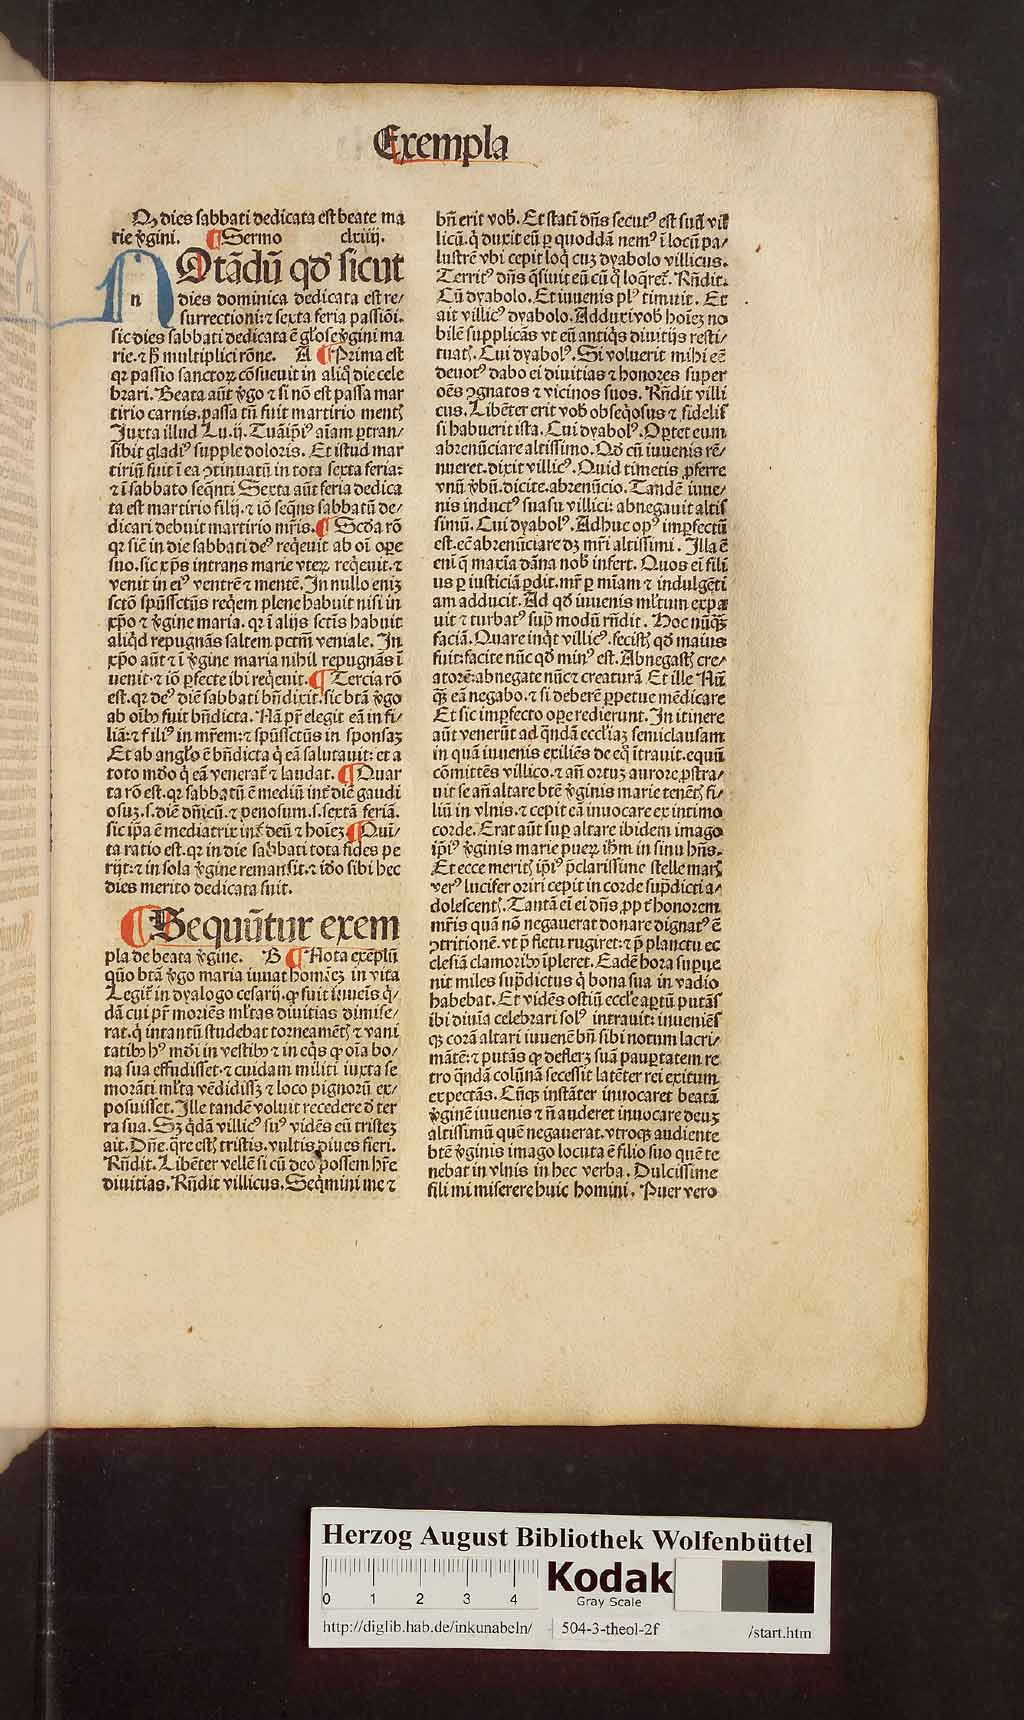 Exempla
Qꝫ dies sabbati dedicata est beate ma
rie v̾gini. ¶ Sermo clxiiij.
NOtādū qd̓ sicut
n dies dominica dedicata est re⸗
surrectioni: ⁊ sexta feria passiōi.
sic dies sabbati dedicata ē gl̓ose v̾gini ma
rie. ⁊ ɧ multiplici rōne. A ¶ Prima est
qꝛ passio sanctoꝝ cōsueuit in aliq̄ die cele
brari. Beata aūt v̾go ⁊ si nō est passa mar
tirio carnis. passa tn̄ fuit martirio mentꝭ
Juxta illud Lu. ij. Tuā ip̄iꝰ aīam ꝑtran⸗
sibit gladiꝰ supple doloris. Et istud mar
tiriū fuit ī ea ꝯtinuatū in tota sexta feria:
⁊ ī sabbato seq̄nti Sexta aūt feria dedica
ta est martirio filij. ⁊ iō seq̄ns sabbatū de⸗
dicari debuit martirio mr̄is. ¶ Scd̓a rō
qꝛ sic̄ in die sabbati deꝰ req̄euit ab oī oꝑe
suo. sic xp̄s intrans marie vteꝝ req̄euit. ⁊
venit in eiꝰ ventrē ⁊ mentē. In nullo enīꝫ
sctō spūssctūs req̄em plene habuit nisi in
xp̄o ⁊ v̾gine maria. qꝛ ī alijs sctīs habuit
aliq̄d repugnās saltem pctm̄ veniale. In
xp̄o aūt ⁊ ī v̾gine maria nihil repugnās ī
uenit. ⁊ iō ꝑfecte ibi req̄euit. ¶ Tercia rō
est. qꝛ deꝰ diē sabbati bn̄dixit. sic btā v̾go
ab oībꝰ fuit bn̄dicta. Nā pr̄ elegit eā in fi⸗
liā: ⁊ filiꝰ in mr̄em: ⁊ spūssctūs in sponsaꝫ
Et ab angl̓o ē bn̄dicta q̇ eā salutauit: et a
toto mūdo q̇ eā venerat̄ ⁊ laudat. ¶ Quar
ta rō est. qꝛ sabbatū ē mediū int̄ diē gaudi
osuꝫ. s. diē dn̄icū. ⁊ penosum. s. sextā feriā.
sic ip̄a ē mediatrix int̄ deū ⁊ hoīeꝫ ¶ Qui⸗
ta ratio est. qꝛ in die sabbati tota fides pe
rijt: ⁊ in sola v̾gine remansit. ⁊ id̓o sibi hec
dies merito dedicata fuit.
¶ Sequūtur exem
pla de beata v̾gine. B ¶ Nota exēplū
quō btā v̾go maria iuuat homīeꝫ in vita
Legit̄ in dyalogo cesarij. ꝙ fuit iuueīs q̇⸗
dā cui pr̄ moriēs ml̓tas diuitias dimise⸗
rat. q̇ intantū studebat torneamētꝭ ⁊ vani
tatibꝰ hꝰ mūdi in vestibꝰ ⁊ in eq̄s ꝙ oīa bo⸗
na sua effudisset. ⁊ cuidam militi iuxta se
morāti ml̓ta vēdidissꝫ ⁊ loco pignorū ex⸗
posuisset. Ille tandē voluit recedere d̓ ter
ra sua. Sꝫ q̇dā villicꝰ suꝰ vidēs eū tristeꝫ
ait. Dn̄e. q̄re estꝭ tristis. vultis diues fieri.
Rn̄dit. Libēter vellē si cū deo possem hr̄e
diuitias. Rn̄dit villicus. Seq̇mini me ⁊
bn̄ erit vob̓. Et statī dn̄s secutꝰ est suū vil
licū. q̇ duxit eū ꝑ quoddā nemꝰ ī locū pa⸗
lustrē vbi cepit loq̇ cuꝫ dyabolo villicus.
Territꝰ dn̄s q̄siuit eū cū q̇ loq̄ret̄. Rn̄dit.
Cū dyabolo. Et iuuenis plꝰ timuit. Et
ait villicꝰ dyabolo. Adduxi vob̓ hoīeꝫ no
bilē supplicās vt eū antiq̇s diuitijs resti⸗
tuatꝭ. Cui dyabolꝰ. Si voluerit mihi eē
deuotꝰ dabo ei diuitias ⁊ honores super
oēs ꝯgnatos ⁊ vicinos suos. Rn̄dit villi
cus. Libēter erit vob̓ obseq̄osus ⁊ fidelis
si habuerit ista. Cui dyabolꝰ. Oꝑtet eum
abrenūciare altissimo. Qd̓ cū iuuenis rē⸗
nueret. dixit villicꝰ. Quid timetis ꝓferre
vnū v̾bū. dicite. abrenūcio. Tandē iuue⸗
nis inductꝰ suasu villici: abnegauit altis
simū. Cui dyabolꝰ. Adhuc opꝰ imꝑfectū
est. eē abrenūciare dꝫ mr̄i altissimi. Illa ē
enī q̄ maxīa dāna nob̓ infert. Quos eī fili
us ꝑ iusticiā ꝑdit. mr̄ ꝑ mīam ⁊ indulgēti
am adducit. Ad qd̓ iuuenis ml̓tum expa
uit ⁊ turbatꝰ sup̄ modū rn̄dit. Hoc nūq̄ꝫ
faciā. Quare inq̇t villicꝰ. fecistꝭ qd̓ maius
fuit: facite nūc qd̓ minꝰ est. Abnegastꝭ cre⸗
atorē: abnegate nūc ⁊ creaturā. Et ille Nū
q̄ꝫ eā negabo. ⁊ si deberē ꝑpetue mēdicare
Et sic imꝑfecto oꝑe redierunt. In itinere
aūt venerūt ad q̄ndā eccl̓iaꝫ semiclausam
in quā iuuenis exiliēs de eq̄ ītrauit. equū
cōmittēs villico. ⁊ an̄ ortuꝫ aurore ꝓstra⸗
uit se an̄ altare btē v̾ginis marie tenētꝭ fi⸗
liū in vlnis. ⁊ cepit eā inuocare ex intimo
corde. Erat aūt suꝑ altare ibidem imago
ip̄iꝰ v̾ginis marie pueꝝ ihm̄ in sinu hn̄s.
Et ecce meritꝭ ip̄iꝰ p̄clarissime stelle maꝭ
verꝰ lucifer oriri cepit in corde sup̄dicti a⸗
dolescentꝭ. Tantā eī ei dn̄s ꝓpt̄ honorem
mr̄is quā nō negauerat donare dignatꝰ ē
ꝯtritionē. vt p̄ fletu rugiret: ⁊ p̄ planctu ec
clesiā clamoribꝰ īpleret. Eadē hora suꝑue
nit miles sup̄dictus q̇ bona sua in vadio
habebat. Et vidēs ostiū eccl̓e aꝑtū putās
ibi diuīa celebrari solꝰ intrauit: inueniēs
qꝫ corā altari iuuenē bn̄ sibi notum lacri⸗
mātē: ⁊ putās ꝙ defleꝝ suā pauꝑtatem re
tro q̄ndā colūnā secessit latēter rei exitum
expectās. Cūqꝫ instāter inuocaret beatā
v̾ginē iuuenis ⁊ n̄ auderet inuocare deuꝫ
altissimū quē negauerat. vtroqꝫ audiente
btē v̾ginis imago locuta ē filio suo quē te
nebat in vlnis in hec verba. Dulcissime
fili mi miserere huic homini. Puer vero
Herzog August Bibliothek Wolfenbüttel
0 1 2 3 4
Kodak
Gray Scale
http://diglib.hab.de/inkunabeln/ 504-3-theol-2f /start.htm